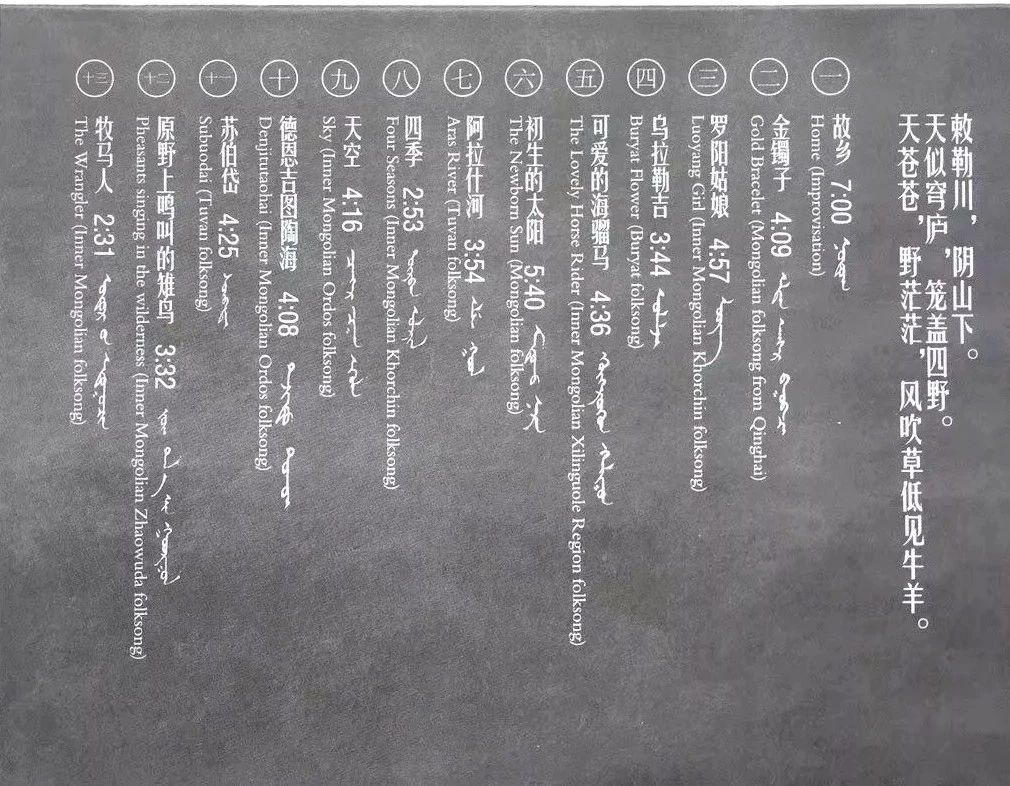 敕勒川，阴山下。
天似穹庐，笼盖四野。
天苍苍，野茫茫，风吹草低见牛羊。
一 故乡 7:00
Home (Improvisation)
二 金镯子 4:09
Gold Bracelet (Mongolian folksong from Qinghai)
三 罗阳姑娘 4:57
Luoyang Girl (Inner Mongolian Khorchin folksong)
四 乌拉勒吉 3:44
Buryat Flower (Buryat folksong)
五 可爱的海骝马 4:36
The Lovely Horse Rider (Inner Mongolian Xilinguole Region folksong)
六 初生的太阳 5:40
The Newborn Sun (Mongolian folksong)
七 阿拉什河 3:54
Aras River (Tuvan folksong)
八 四季 2:53
Four Seasons (Inner Mongolian Khorchin folksong)
九 天空 4:16
Sky (Inner Mongolian Ordos folksong)
十 德恩吉图陶海 4:08
Denjitutaohai (Inner Mongolian Ordos folksong)
十一 苏伯岱 4:25
Subuodai (Tuvan folksong)
十二 原野上鸣叫的雉鸟 3:32
Pheasants singing in the wilderness (Inner Mongolian Zhaowuda folksong)
十三 牧马人 2:31
The Wrangler (Inner Mongolian folksong)